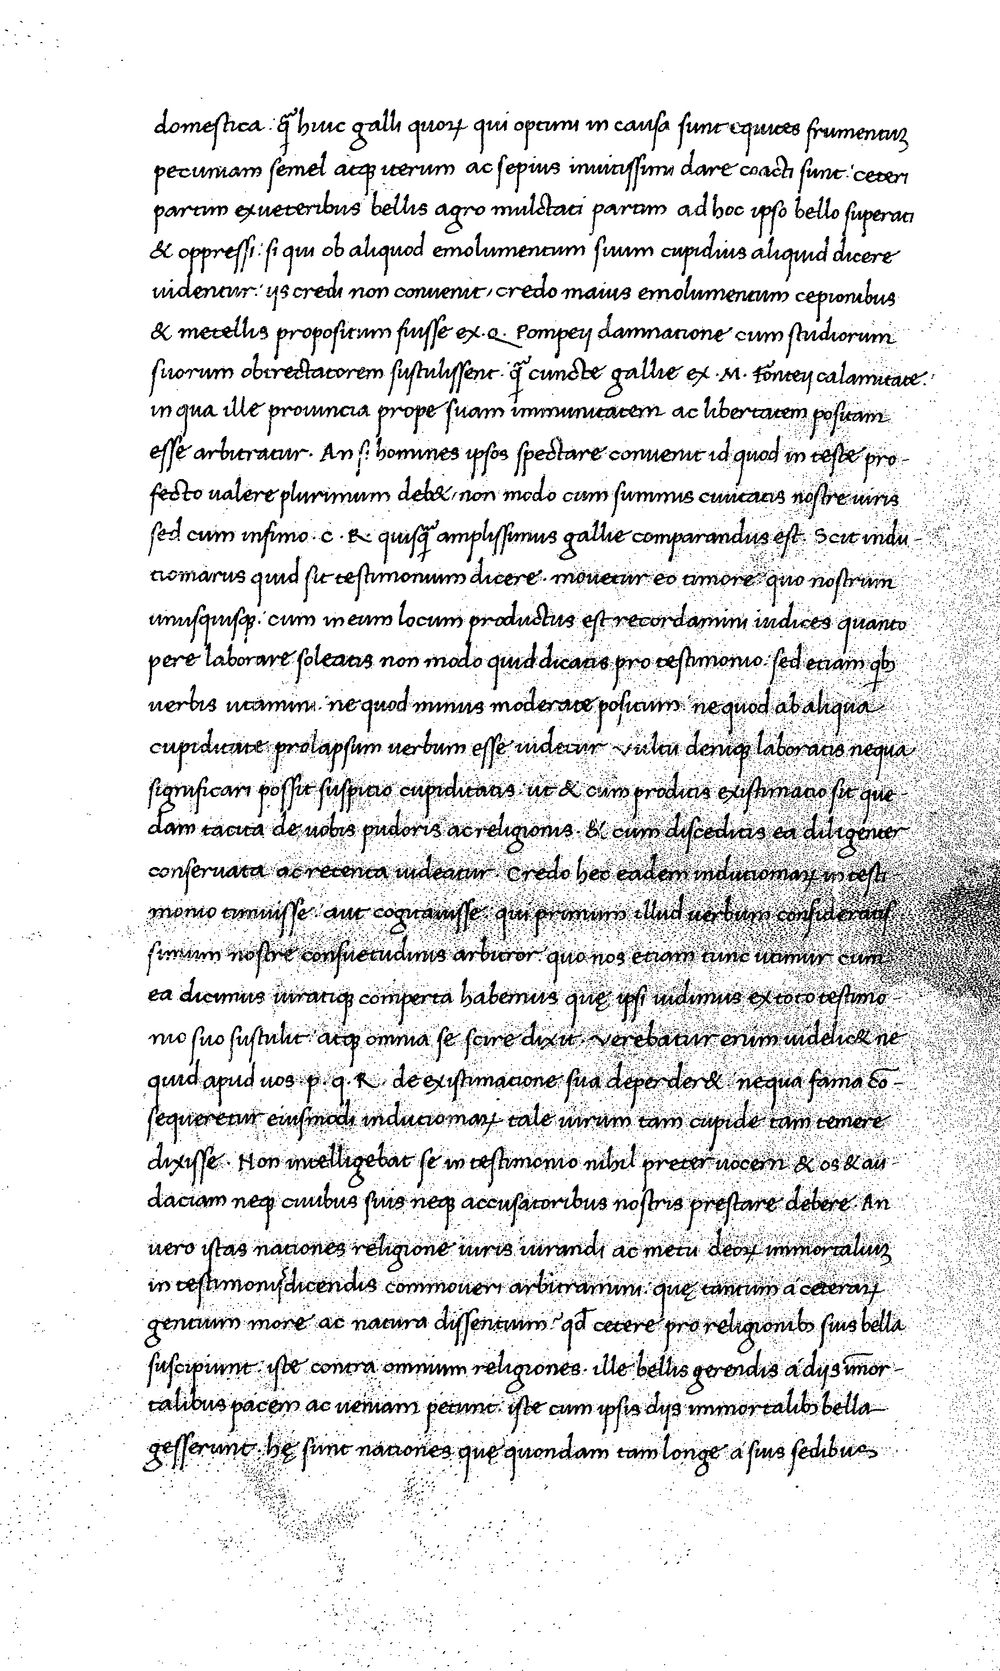 domestica. q̃ huic galli quoꝝ qui optimi in causa sunt equites frumentuꝫ
pecuniam semel atqꝫ iterum ac sepius inuitissimi dare coacti sunt. ceteri
partim ex ueteribus bellis agro mulctati partim ad hoc ipso bello superati
& oppressi. si qui ob aliquod emolumentum suum cupidius aliquid dicere
uidentur. iis credi non conuenit, credo maius emolumentum cepionibus
& metellis propositum fuisse ex. Q. Pompeij damnatione cum studiorum
suorum obtrectatorem sustulissent. q̃ cuncte gallie ex. M. Fonteij calamitate.
in qua ille prouincia prope suam immunitatem ac libertatem positam
esse arbitratur. An si homines ipsos spectare conuenit id quod in teste pro-
fecto ualere plurimum deb&, non modo cum summis ciuitatis nostre uiris
sed cum infimo. c. R. quisq̃ amplissimus gallie comparandus est. Scit indu-
tiomarus quid sit testimonium dicere. mouetur eo timore quo nostrum
unusquisqꝫ. cum in eum locum productus est recordamini iudices quanto
pere laborare soleatis non modo quid dicatis pro testimonio. sed etiam qbꝫ
uerbis utamini. ne quod minus moderate positum. ne quod ab aliqua
cupiditate prolapsum uerbum esse uidetur. Vultu deniqꝫ laboratis nequa
significari possit suspitio cupiditatis. ut & cum proditis existimatio sit que-
dam tacita de uobis pudoris ac religionis. & cum disceditis ea diligenter
conseruata ac retenta uideatur. Credo hec eadem indutiomaꝝ in testi
monio timuisse. aut cogitauisse. qui primum illud uerbum consideratis
simum nostre consuetudinis arbitror quo nos etiam tunc utimur cum
ea dicimus iuratiqꝫ comperta habemus quę ipsi uidimus ex toto testimo
nio suo sustulit. atqꝫ omnia se scire dixit. Verebatur enim uidelic& ne
quid apud uos. p. q. R. de existimatione sua deperder& nequa fama cō-
sequeretur eiusmodi indutiomaꝝ tale uirum tam cupide tam temere
dixisse. Non intelligebat se in testimonio nihil preter uocem & os & au
daciam neqꝫ ciuibus suis neqꝫ accusatoribus nostris prestare debere. An
uero istas nationes religione iuris iurandi ac metu deoꝝ immortaliuꝫ
in testimoniis dicendis commoueri arbitramini. quę tantum a ceteraꝝ
gentium more ac natura dissentiunt. qd̄ cetere pro religionibꝫ suis bella
suscipiunt. iste contra omnium religiones. ille bellis gerendis a diis īmor-
talibus pacem ac ueniam petunt. iste cum ipsis diis immortalibꝫ bella
gesserunt. hę sunt nationes quę quondam tam longe a suis sedibus